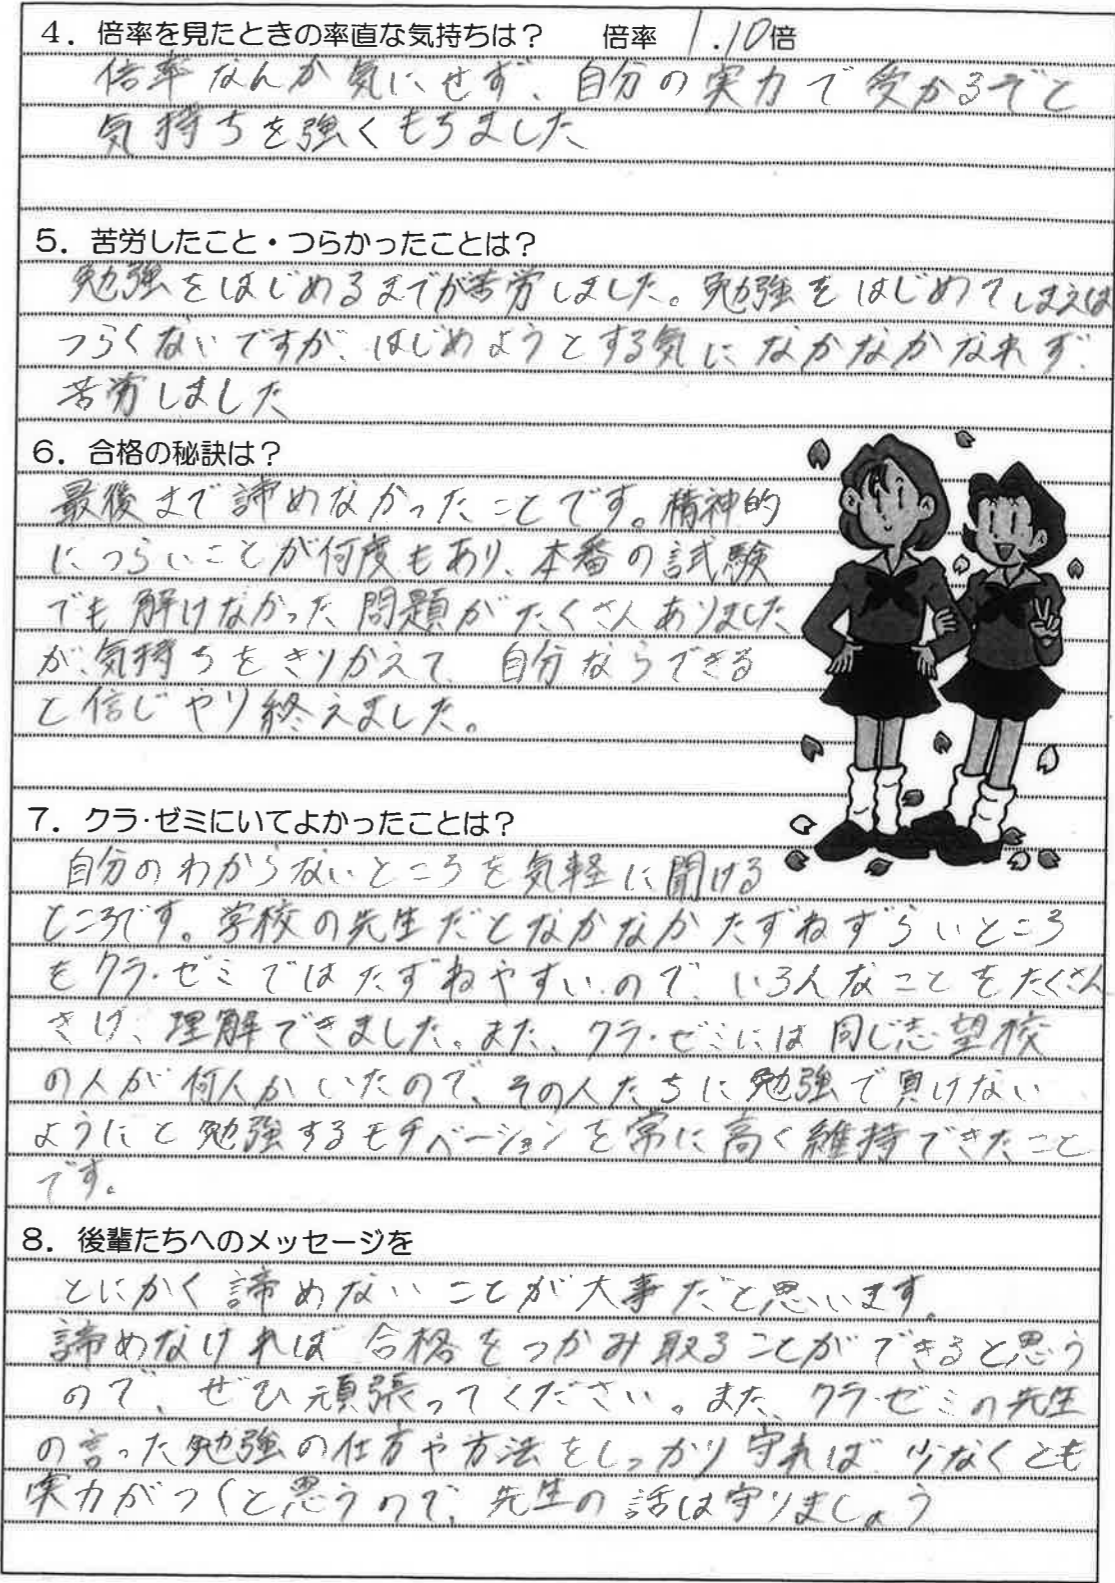 4．倍率を見たときの率直な気持ちは？　倍率 1.10倍
倍率なんか気にせず、自分の実力で受かるぞと
気持ちを強くもちました
5．苦労したこと・つらかったことは？
勉強をはじめるまでが苦労しました。勉強をはじめてしまえば
つらくないですが、はじめようとする気になかなかなれず、
苦労しました
6．合格の秘訣は？
最後まで諦めなかったことです。精神的
につらいことが何度もあり、本番の試験
でも解けなかった問題がたくさんありました
が、気持ちをきりかえて、自分ならできる
と信じやり終えました。
7．クラ・ゼミにいてよかったことは？
自分のわからないところを気軽に聞ける
ところです。学校の先生だとなかなかたずねずらいところ
もクラ・ゼミではたずねやすいので、いろんなことをたくさん
きけ、理解できました。また、クラ・ゼミには同じ志望校
の人が何人かいたので、その人たちに勉強で負けない
ようにと勉強するモチベーションを常に高く維持できたこと
です。
8．後輩たちへのメッセージを
とにかく諦めないことが大事だと思います。
諦めなければ合格をつかみ取ることができると思う
ので、ぜひ頑張ってください。また、クラ・ゼミの先生
の言った勉強の仕方や方法をしっかり守れば、少なくとも
実力がつくと思うので、先生の話は守りましょう